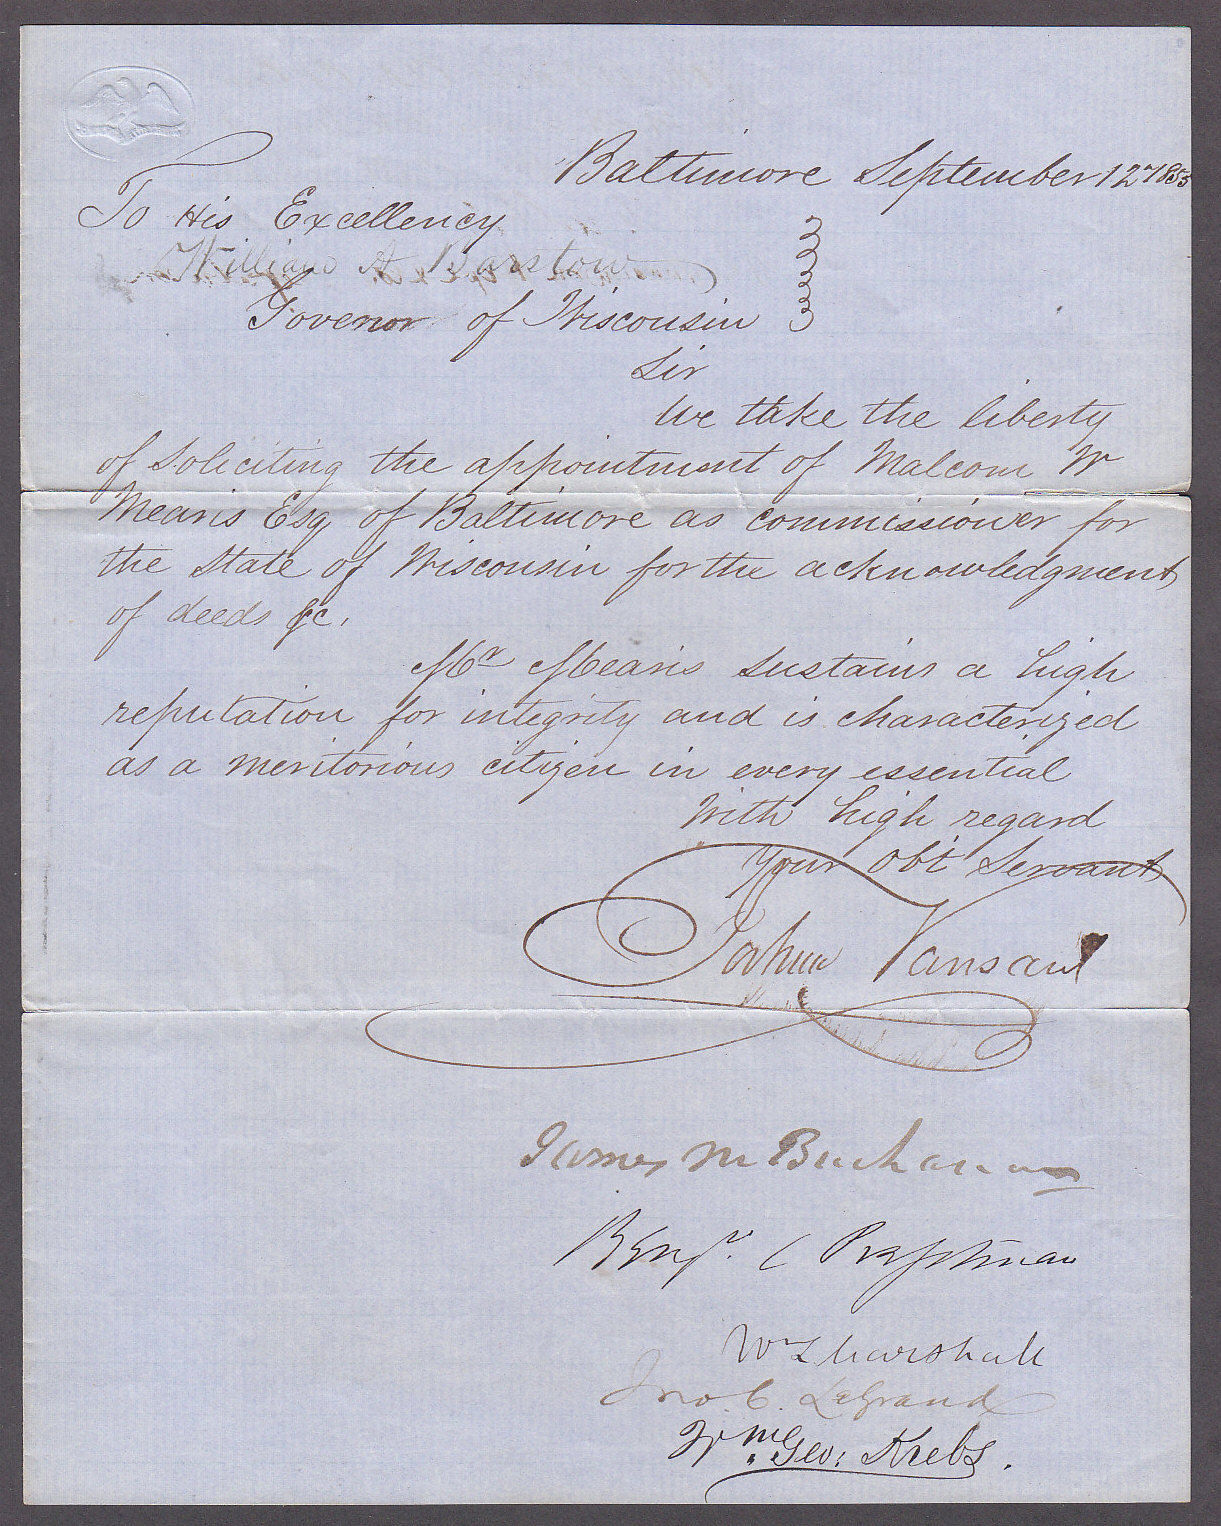 Baltimore September 12 1855
To His Excellency
William A Barstow
Govenor of Wisconsin
Sir
We take the liberty
of soliciting the appointment of Malcom W
Mearis Esq of Baltimore as commissioner for
the State of Wisconsin for the acknowledgment
of deeds &c.
Mr Mearis sustains a high
reputation for integrity and is characterized
as a meritorious citizen in every essential
With high regard
Your Obt Servant
Joshua Vansant
James M Buchanan
Benjn C Presstman
Wm L Marshall
Jno. C. LeGrand
Wm. Geo. Krebs.